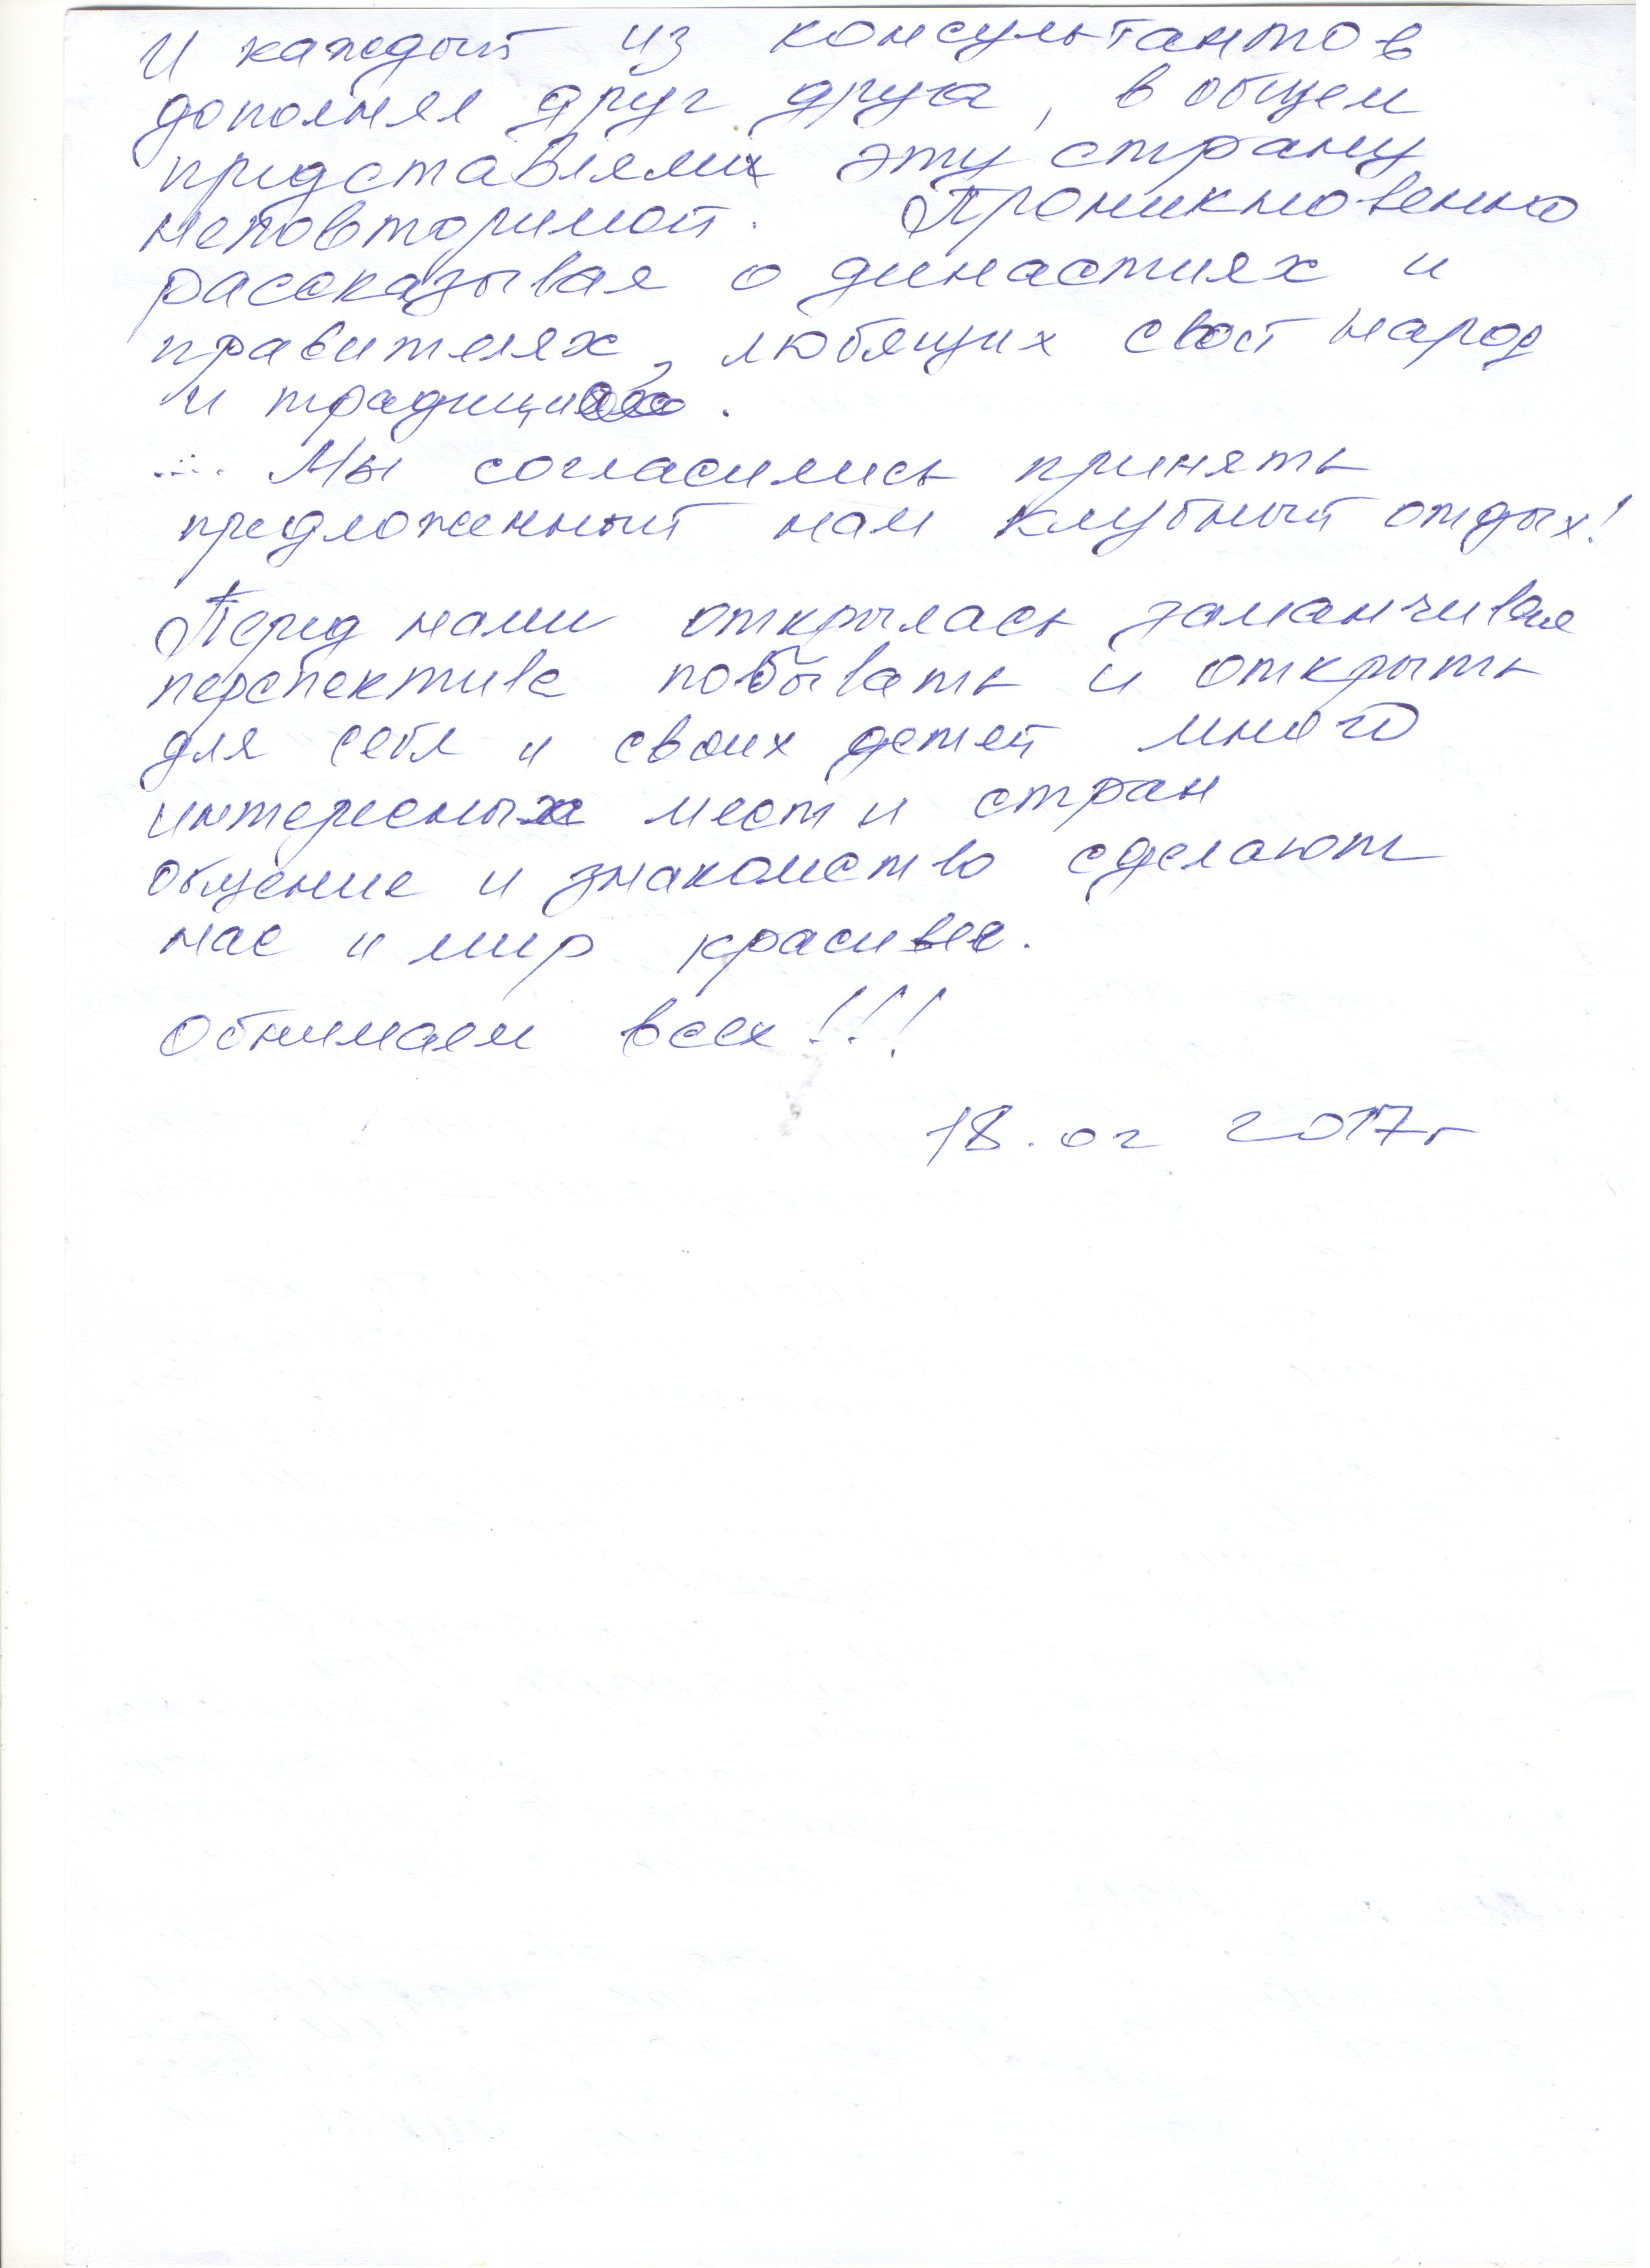 И каждый из консультантов
дополнял друг друга, в общем
представляли эту страну
неповторимой. Проникновенно
рассказывая о династиях и
правителях, любящих свой народ
и традиции.
... Мы согласились принять
предложенный нам клубный отдых!
Перед нами открылась заманчивая
перспектива побывать и открыть
для себя и своих детей много
интересных мест и стран
общение и знакомство сделают
нас и мир красивее.
Обнимаем всех!!!
18.02 2017г